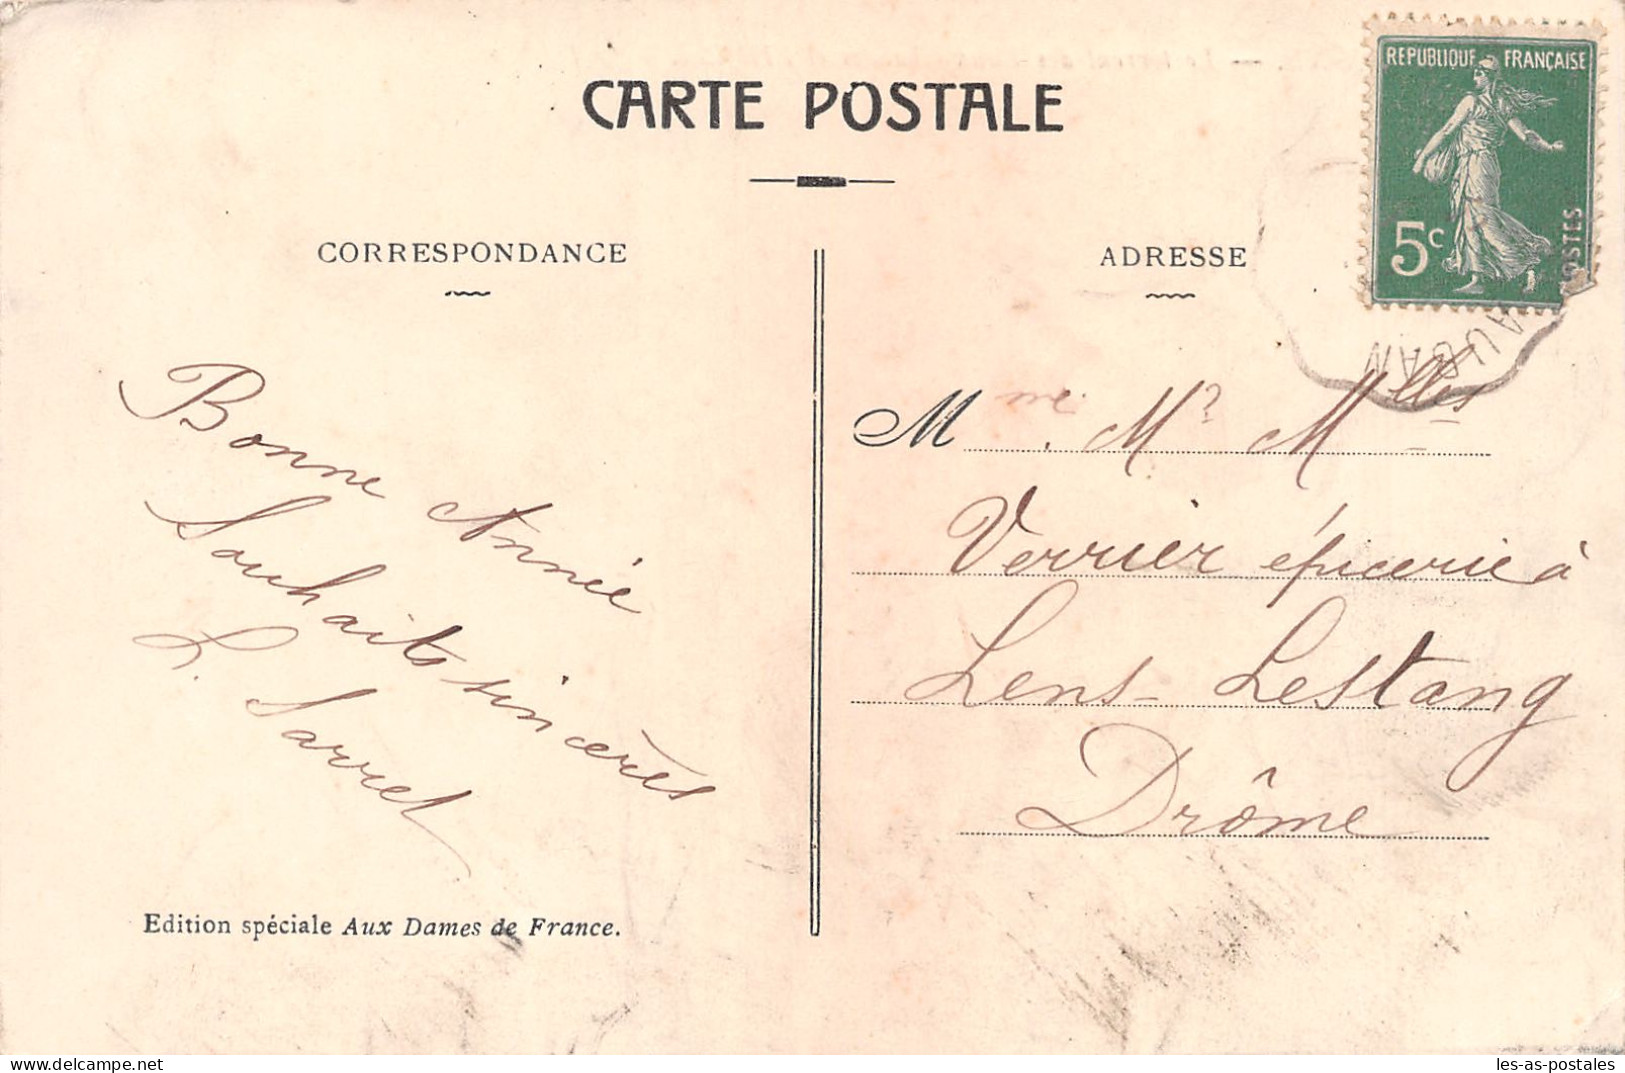 CARTE POSTALE
REPUBLIQUE FRANÇAISE
5c
POSTES
CORRESPONDANCE
ADRESSE
Bonne Année
Souhaits sincères
L. Sarret
Edition spéciale Aux Dames de France.
Mme. Mr Mlles
Verrier épicerie à
Lens-Lestang
Drôme
delcampe.net
les-as-postales